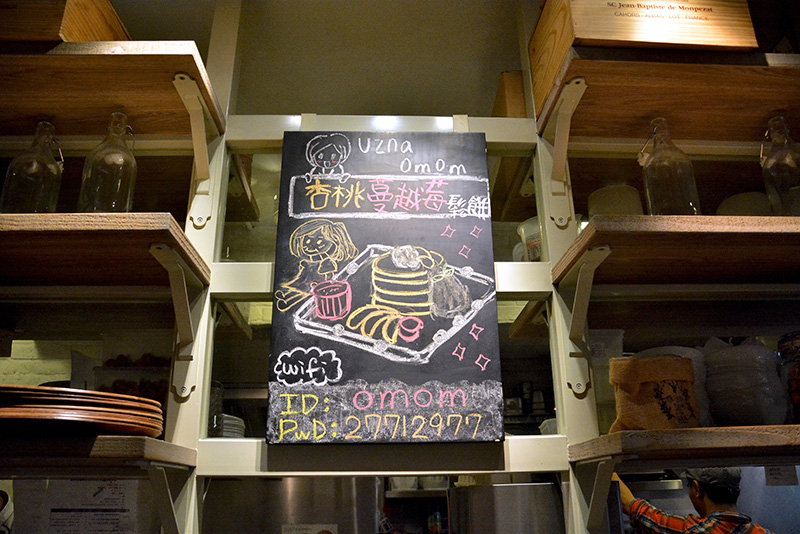 SC Jean-Baptiste de Monpezat
CAHORS - ALBAS - LOT - FRANCE
uzna
omom
杏桃蔓越莓鬆餅
wifi
ID: omom
PWD: 27712977